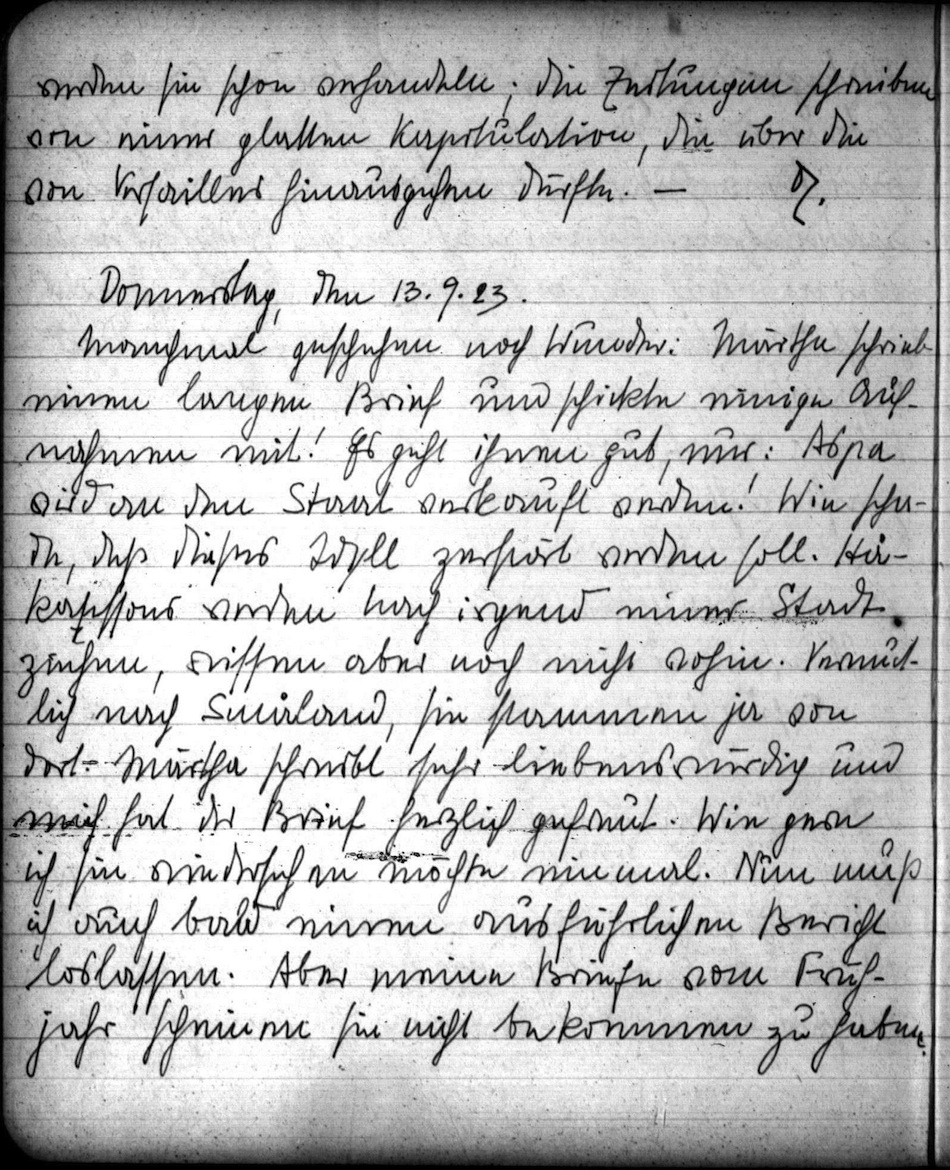 werden sie schon verhandeln; die Zeitungen schreiben
von einer glatten Kapitulation, die über die
von Versailles hinausgehen dürfte. —
Donnerstag, den 13.9.23.
Manchmal geschehen noch Wunder: Märtha schrieb
einen langen Brief und schickte einige Auf-
nahmen mit! Es geht ihnen gut, nur: Aspa
wird an den Staat verkauft werden! Wie scha-
de, daß dieses Idyll zerstört werden soll. Hå-
kanssons werden nach irgend einer Stadt
ziehen, wissen aber noch nicht wohin. Vermut-
lich nach Småland, sie stammen ja von
dort. Märtha schreibt sehr liebenswürdig und
mich hat der Brief herzlich gefreut. Wie gern
ich sie wiedersehen möchte einmal. Nun muß
ich auch bald einen ausführlichen Bericht
loslassen. Aber meine Briefe vom Früh-
jahr scheinen sie nicht bekommen zu haben.